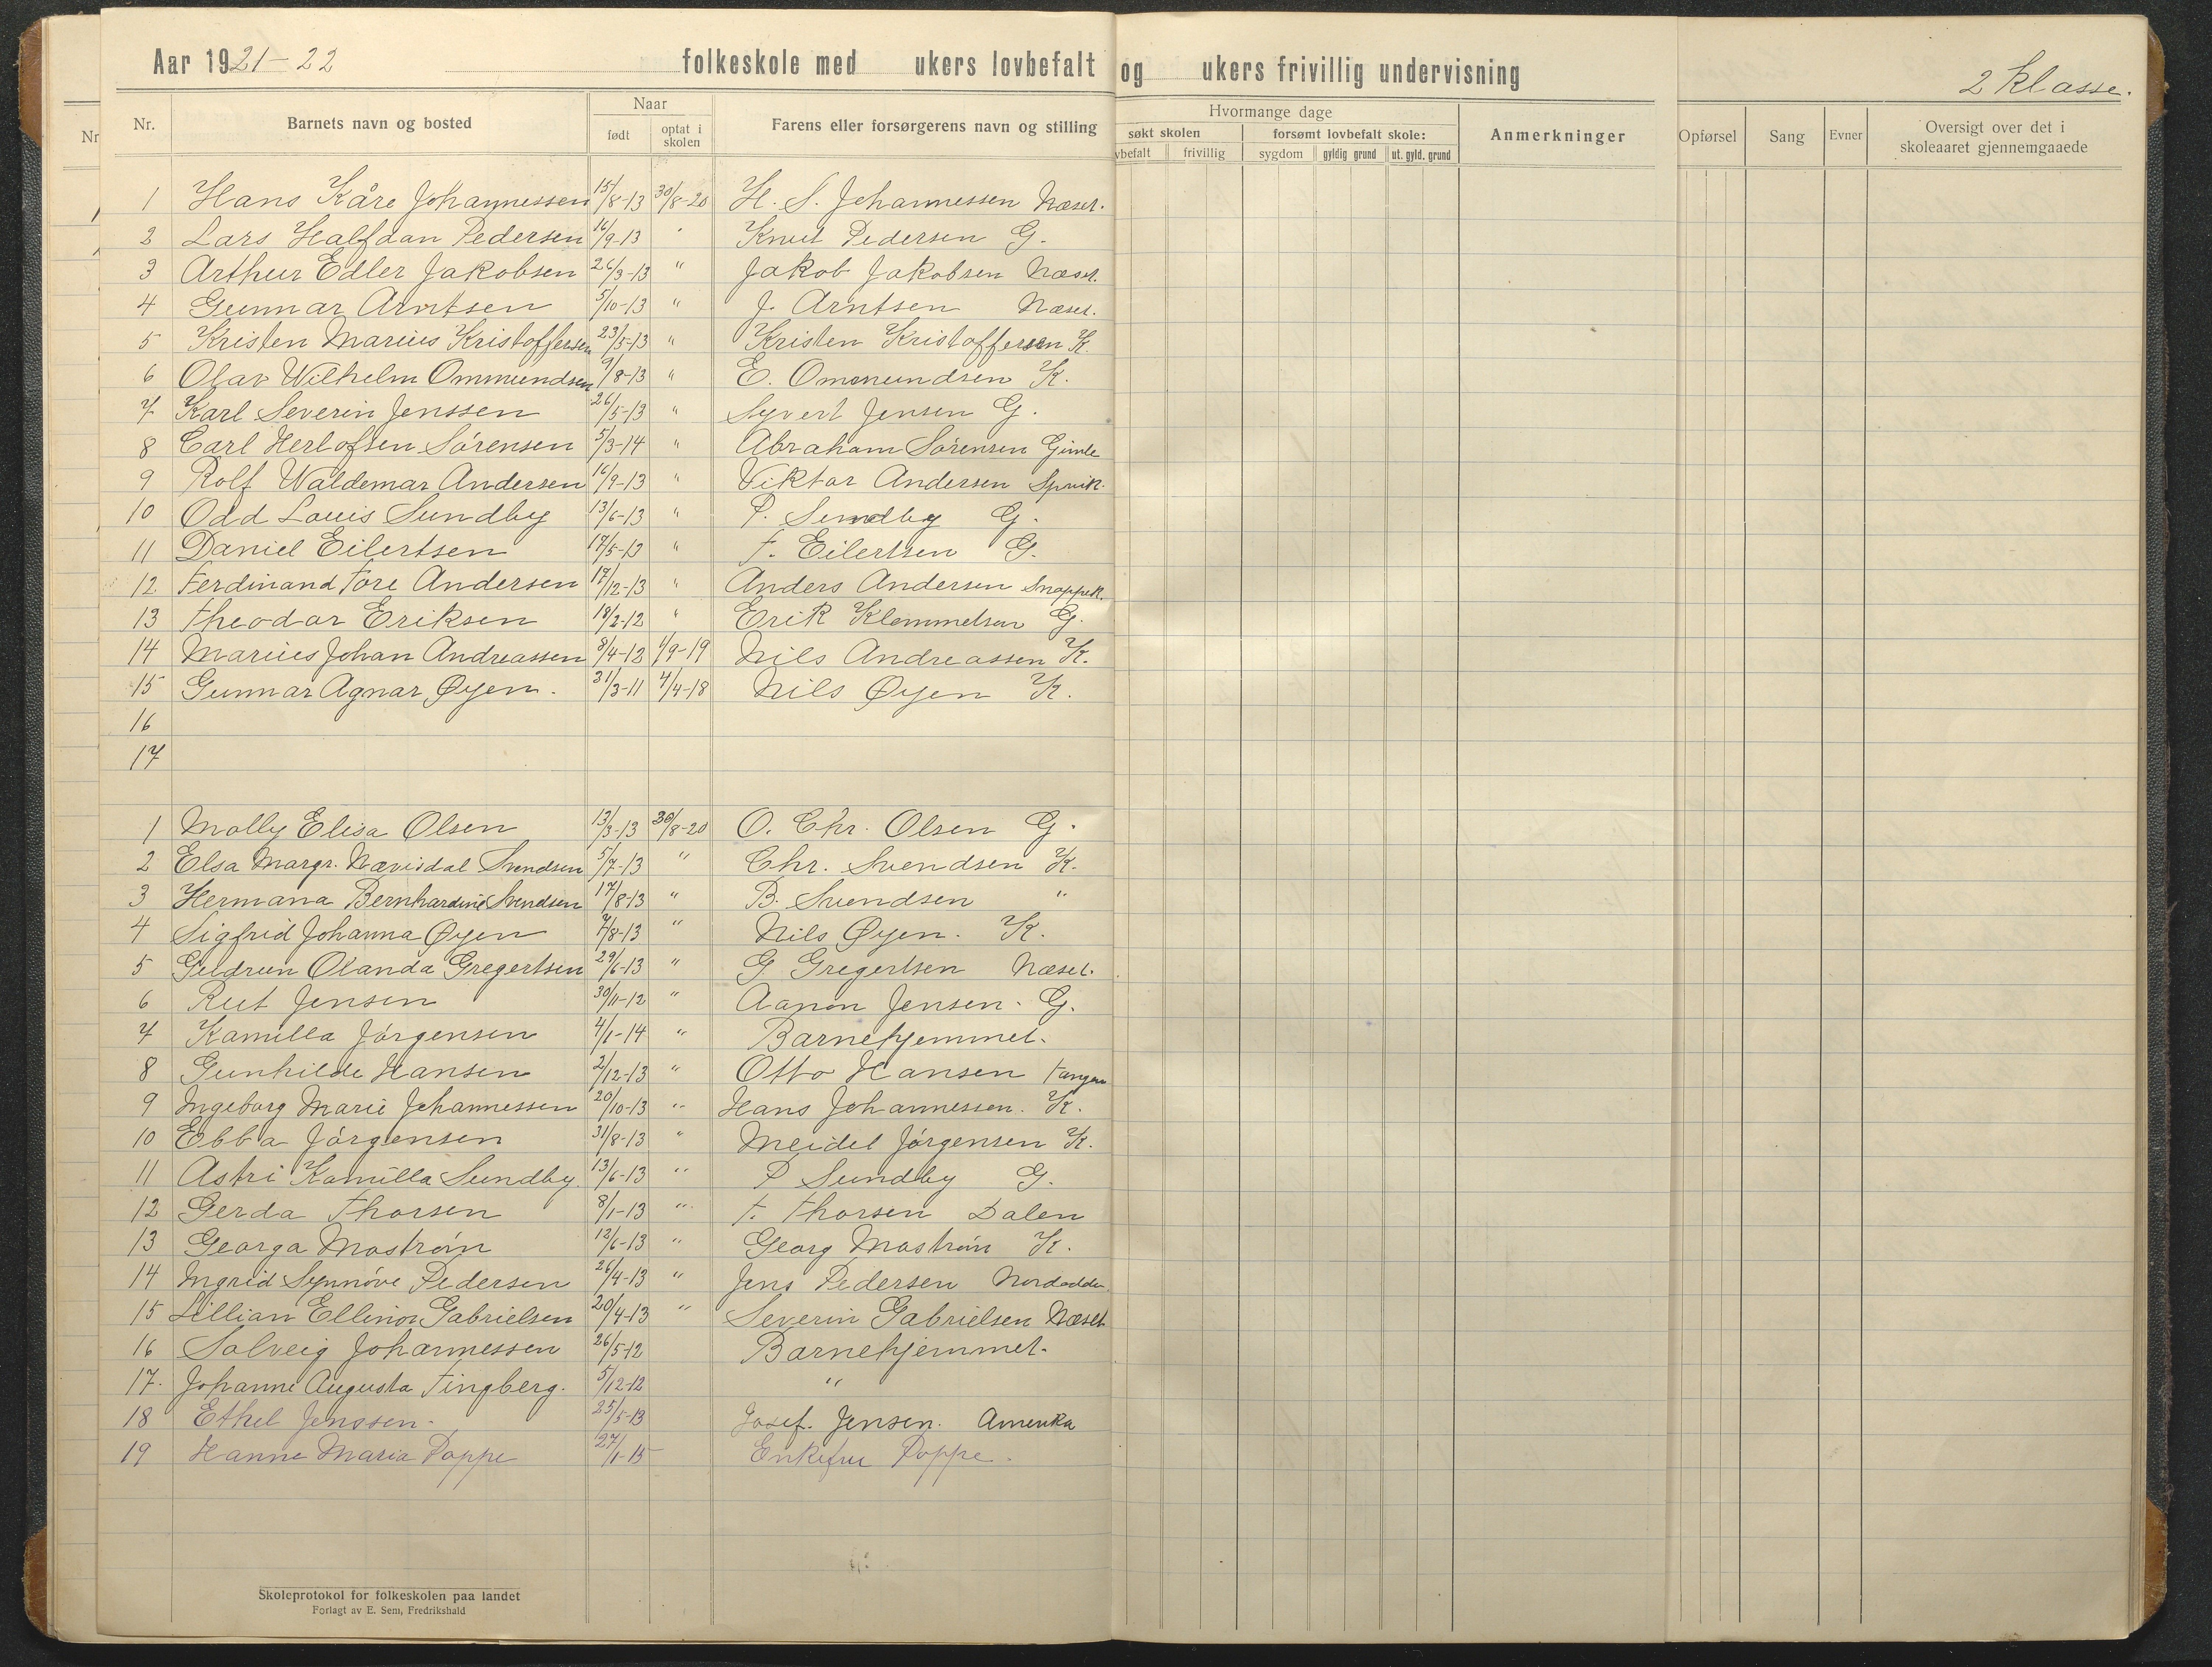 Aar 1921-22 folkeskole med ukers lovbefalt og ukers frivillig undervisning
2 klasse.
Nr
Nr. Barnets navn og bosted Naar født optat i skolen Farens eller forsørgerens navn og stilling
Hvormange dage
søkt skolen forsømt lovbefalt skole: Anmerkninger
vbefalt frivillig sygdom gyldig grund ut. gyld. grund
Opførsel Sang Evner Oversigt over det i skoleaaret gjennemgaaede
1 Hans Kåre Johannessen 15/8-13 30/8-20 H. S. Johannessen Næset.
2 Lars Halfdan Pedersen 16/9-13 " Knut Pedersen G.
3 Arthur Edler Jakobsen 26/3-13 " Jakob Jakobsen Næset.
4 Gunnar Arntsen 5/10-13 " J. Arntsen Næset.
5 Kristen Marius Kristoffersen 23/5-13 " Kristen Kristoffersen K.
6 Olav Wilhelm Ommundsen 9/8-13 " E. Ommundsen K.
7 Karl Severin Jenssen 26/5-13 " Syvert Jensen G.
8 Carl Herlofsen Sørensen 5/3-14 " Abraham Sørensen Gimle
9 Rolf Waldemar Andersen 16/9-13 " Viktor Andersen
10 Odd Louis Sundby 13/6-13 " P. Sundby G.
11 Daniel Eilertsen 17/5-13 " T. Eilertsen G.
12 Ferdinand Tore Andersen 17/12-13 " Anders Andersen
13 Theodor Eriksen 18/2-12 " Erik Klemmetsen G.
14 Marius Johan Andreassen 8/4-12 1/9-19 Nils Andreassen K.
15 Gunnar Agnar Øyen. 31/3-11 4/4-18 Nils Øyen K.
16
17
1 Molly Elisa Olsen 13/3-13 30/8-20 O. Chr. Olsen G.
2 Elsa Margr. Nævisdal Svendsen 5/7-13 " Chr. Svendsen K.
3 Hermana Bernhardine Svendsen 17/8-13 " B. Svendsen "
4 Sigfrid Johanna Øyen 7/8-13 " Nils Øyen. K.
5 Guldrun Olanda Gregertsen 29/6-13 " G. Gregertsen Næset.
6 Rut Jensen 30/11-12 " Aanon Jensen. G.
7 Kamilla Jörgensen 4/1-14 " Barnehjemmet.
8 Gunhilde Hansen 2/12-13 " Otto Hansen Tangen
9 Ingeborg Marie Johannessen 20/10-13 " Hans Johannessen. K.
10 Ebba Jörgensen 31/8-13 " Meidel Jörgensen K.
11 Astri Kamilla Sundby. 13/6-13 " P Sundby G.
12 Gerda Thorsen 8/1-13 " T. Thorsen Dalen
13 Georga Moström 12/6-13 " Georg Moström K.
14 Ingrid Synnöve Pedersen 26/4-13 " Jens Pedersen Nordodden.
15 Lillian Ellinor Gabrielsen 20/4-13 " Severin Gabrielsen Næset
16 Solveig Johannessen 26/5-12 Barnehjemmet.
17. Johanne Augusta Tingberg. 5/12-12 "
18 Ethel Jenssen. 25/5-13 Josef. Jensen. Amerika
19 Hanne Maria Poppe 27/1-15 Enkefru Poppe.
Skoleprotokol for folkeskolen paa landet
Forlagt av E. Sem, Fredrikshald